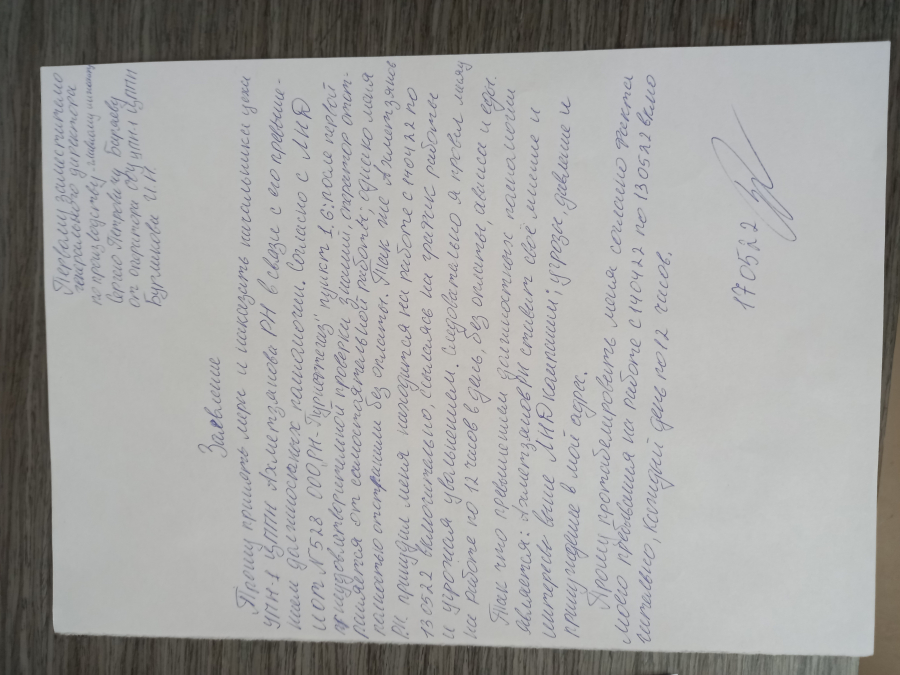 Первому заместителю
генерального директора
по производству - главному инженеру
Сергею Петровичу Бораеву
от оператора ООУ УПН-1 ЦППН
Бурлакова И.П.
Заявление
Прошу принять меры и наказать начальника цеха
УПН-1 ЦППН Ахметзянова РН в связи с его превыше-
нием должностных полномочий. Согласно с ЛНД
и от N 528 ООО "РН-Пурнефтегаз" пункт 1.6: после первой
неудовлетворительной проверки знаний, оператор отст-
раняется от самостоятельной работы; однако меня
полностью отстранили без оплаты. Так же Ахметзянов
Р.Н. принудил меня находится на работе с 140422 по
130522 включительно, ссылаясь на график работы
и угрожая увольнением. Следовательно я провел месяц
на работе по 12 часов в день, без оплаты, аванса и еды.
Так что превышением должностных полномочий
является: Ахметзянов РН ставит своё мнение и
интересы выше ЛНД компании; угрозы, давление и
принуждение в мой адрес.
Прошу протабелировать меня согласно факта
моего пребывания на работе с 140422 по 130522 вклю
чительно, каждый день по 12 часов.
170522